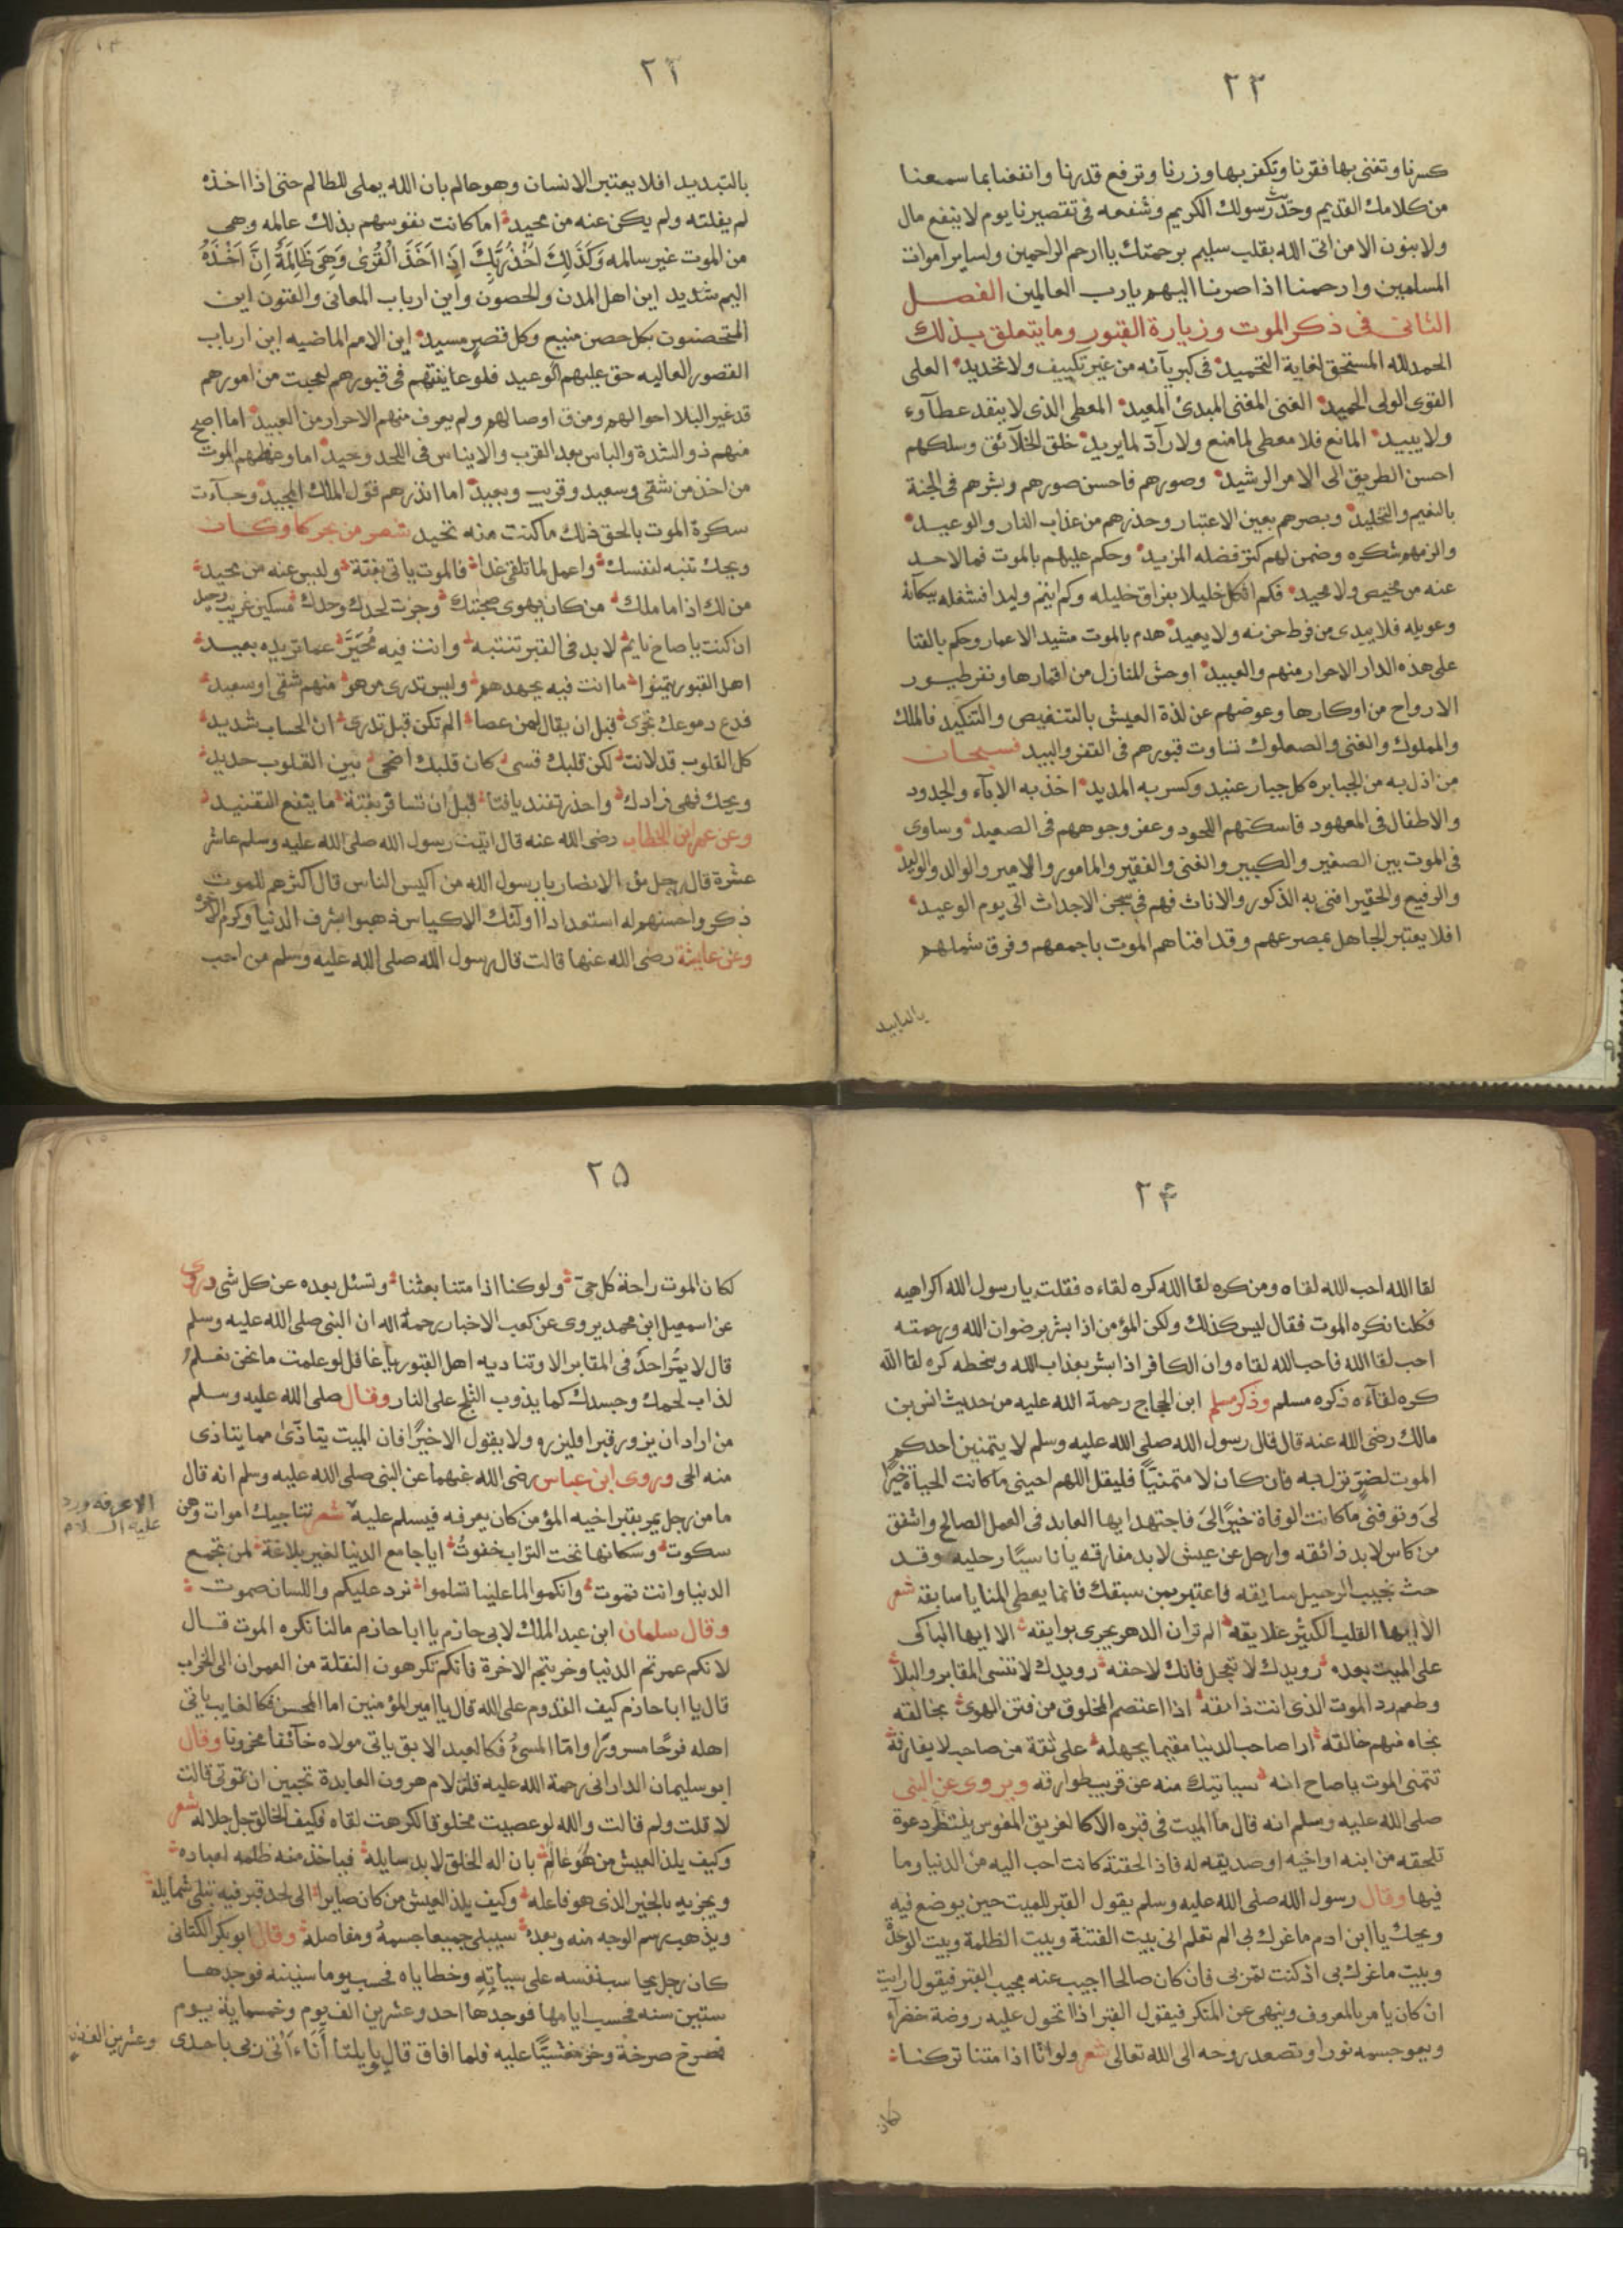 ٢٢
كسرنا وتغنى بها فقرنا وتكفر بها وزرنا وترفع قدرنا وانفعنا بما سمعنا
من كلامك القديم وحديث رسولك الكريم وشفعه فى تقصيرنا يوم لا ينفع مال
ولا بنون الا من اتى الله بقلب سليم برحمتك ياارحم الراحمين ولساير اموات
المسلمين وارحمنا اذا صرنا اليهم يا رب العالمين الفصل
الثانى فى ذكر الموت وزيارة القبور وما يتعلق بذلك
الحمد لله المستحق لغاية التحميد فى كبريآئه من غير تكييف ولا تحديد العلى
القوى الولى الحميد الغنى المغنى المبدئ المعيد المعطى الذى لا ينفد عطآوه
ولا يبيد المانع فلا معطى لما منع ولا رآد لما يريد خلق الخلآئق وسلكهم
احسن الطريق الى الامر الرشيد وصورهم فاحسن صورهم وبشرهم فى الجنة
بالنعيم والتخليد وبصرهم بعين الاعتبار وحذرهم من عذاب النار والوعيد
والزمهم شكره وضمن لهم كنز فضله المزيد وحكم عليهم بالموت فما لاحد
عنه من محيص ولا محيد فكم اثكل خليلا بفراق خليله وكم ايتم وليدا فشغله ببكآئه
وعويله فلا يبدى من فرط حزنه ولا يعيد هدم بالموت مشيد الاعمار وحكم بالفنا
على هذه الدار الاحرار منهم والعبيد اوحش المنازل من اقمارها ونفر طيور
الارواح من اوكارها وعوضهم عن لذة العيش بالتنغيص والتنكيد فالملك
والمملوك والغنى والصعلوك تساوت قبورهم فى القفر والبيد فسبحان
من اذل به من الجبابره كل جبار عنيد وكسر به المديد اخذ به الابآء والجدود
والاطفال فى المعهود فاسكنهم اللحود وعفر وجوههم فى الصعيد وساوى
فى الموت بين الصغير والكبير والغنى والفقير والمامور والامير والوالد والوليد
والرفيع والحقير افنى به الذكور والاناث فهم فى سجن الاجداث الى يوم الوعيد
افلا يعتبر الجاهل بمصرعهم وقد افناهم الموت باجمعهم وفرق شملهم
٢٣
بالتبديد افلا يعتبر الانسان وهو عالم بان الله يملى للظالم حتى اذا اخذه
لم يفلته ولم يكن عنه من محيد اما كانت نفوسهم بذلك عالمه وهى
من الموت غير سالمه وَكَذَلِكَ اَخْذُ رَبِّكَ اِذَا اَخَذَ الْقُرٰى وَهِىَ ظَالِمَةٌ اِنَّ اَخْذَهُ
اليم شديد اين اهل المدن والحصون واين ارباب المعانى والفنون اين
المتحصنون بكل حصن منيع وكل قصر مسيد اين الامم الماضيه اين ارباب
القصور العاليه حق عليهم الوعيد فلو عاينتهم فى قبورهم لعجبت من امورهم
قد غير البلا احوالهم ومزق اوصالهم ولم يعرف منهم الاحرار من العبيد اما اصبح
منهم ذو الشدة والباس بعد القرب والايناس فى اللحد وحيد اما وعظهم الموت
من اخذ من شقى وسعيد وقريب وبعيد اما انذرهم قول الملك المجيد وجآءت
سكرة الموت بالحق ذلك ما كنت منه تحيد شعر من بحر كا وكان
ويحك تنبه لنفسك واعمل لما تلقى غدا فالموت ياتى بغتة وليس عنه من محيد
من لك اذا ما ملك من كان يهوى صحبتك وجزت لحدك وحدك مسكين غريب وحيد
ان كنت يا صاح نايم لا بد فى القبر تنتبه وانت فيه مُحَيَّر عما تريده بعيد
اهل القبور يتمنوا ما انت فيه بجهدهم وليس تدرى من هو منهم شقى او سعيد
فدع دموعك تجرى قبل ان يقال لمن عصا الم تكن قبل تدرى ان الحساب شديد
كل القلوب قد لانت لكن قلبك قسى كان قلبك اضحى بين القلوب حديد
ويحك فهى زادك واحذر تفند يا فتا قبل ان تسافر بغتة ما ينفع التفنيد
وعن عمر ابن الخطاب رضى الله عنه قال اتيت رسول الله صلى الله عليه وسلم عاشر
عشرة قال رجل من الانصار يا رسول الله من اكيس الناس قال اكثرهم للموت
ذكر واحسنهم له استعدادا اولئك الاكياس ذهبوا بشرف الدنيا وكرم الاخره
وعن عايشة رضى الله عنها قالت قال رسول الله صلى الله عليه وسلم من احب
٢۴
لقا الله احب الله لقاه ومن كره لقا الله كره لقاءه فقلت يا رسول الله اكراهيه
فكلنا نكره الموت فقال ليس كذلك ولكن المؤمن اذا بشر برضوان الله ورحمته
احب لقا الله فاحب الله لقاه وان الكافر اذا بشر بعذاب الله وسخطه كره لقا الله
كره لقآءه ذكره مسلم وذكر مسلم ابن الحجاج رحمة الله عليه من حديث انس بن
مالك رضى الله عنه قال قال رسول الله صلى الله عليه وسلم لا يتمنين احدكم
الموت لضرّ نزل به فان كان لا متمنيّا فليقل اللهم احينى ما كانت الحياة خيرًا
لى وتوفنى ما كانت الوفاة خيرًا لى فاجتهد ايها العابد فى العمل الصالح واشفق
من كاس لا بد ذائقه وارحل عن عيش لا بد مفارقه يا ناسيًا رحليه وقد
حث نجيب الرحيل سايقه فاعتبر بمن سبقك فانما يعطى المنايا سابقه شعر
الا ايها القلب الكثير علايقه الم تر ان الدهر يجرى بوايقه الا ايها الباكى
على الميت بعده رويدك لا تعجل فانك لاحقه رويدك لا تنسى المقابر والبلا
وطعم رد الموت الذى انت ذايقه اذا اعتصم المخلوق من فتن الهوى بخالقه
نجاه منهم خالقه ارا صاحب الدنيا مقيما بجهله على ثقة من صاحب لا يفارقه
تتمنى الموت يا صاح انه سياتيك منه عن قريب طوارقه ويروى عن النبى
صلى الله عليه وسلم انه قال ما الميت فى قبره الا كالغريق المغوس ينتظر دعوة
تلحقه من ابنه او اخيه او صديقه له فاذا لحقته كانت احب اليه من الدنيا وما
فيها وقال رسول الله صلى الله عليه وسلم يقول القبر للميت حين يوضع فيه
ويحك ياابن ادم ما غرك بى الم تعلم انى بيت الفتنة وبيت الظلمة وبيت الوحدة
وبيت ما غرك بى اذ كنت تمر بى فان كان صالحا اجيب عنه مجيب القبر فيقول ارايت
ان كان يامر بالمعروف وينهى عن المنكر فيقول القبر اذا اتحول عليه روضة خضرآء
ويعو جسمه نورا وتصعد روحه الى الله تعالى شعر ولو انّا اذا متنا تركنا
كان
٢۵
لكان الموت راحة كل حىّ ولو كنا اذا متنا بعثنا ونسئل بعده عن كل شى وروى
عن اسمعيل ابن محمد يروى عن كعب الاخبار رحمة الله ان النبى صلى الله عليه وسلم
قال لا يمر احدٌ فى المقابر الا وتناديه اهل القبور يا غافل لو علمت ما نحن نعلم
لذاب لحمك وجسدك كما يذوب الثلج على النار وقال صلى الله عليه وسلم
من اراد ان يزور قبرا فليزره ولا يقول الا خيرًا فان الميت يتاذّى مما يتاذى
منه الحى وروى ابن عباس رضى الله عنهما عن النبى صلى الله عليه وسلم انه قال
ما من رجل يمر بقبر اخيه المؤمن كان يعرفه فيسلم عليه شعر تناجيك اموات وهن
الا عرفه ورد
عليه السلام
سكوت وسكانها تحت التراب خفوتُ ايا جامع الدنيا لغير بلاغة لمن تجمع
الدنيا وانت تموت وانكموا لما علينا تسلموا نرد عليكم واللسان صموت
وقال سلمان ابن عبد الملك لابى حازم يا ابا حازم مالنا نكره الموت قال
لانكم عمرتم الدنيا وخربتم الاخرة فانكم تكرهون النقلة من العمران الى الخراب
قال يا ابا حازم كيف القدوم على الله قال ياامير المؤمنين اما المحسن فكالغايب ياتى
اهله فرحًا مسرورًا وامّا المسئُ فكالعبد الابق ياتى مولاه خآئفا محزونا وقال
ابو سليمان الدارانى رحمة الله عليه قلت لام هرون العابدة تحبين ان تموتى قالت
لا قلت ولم قالت والله لو عصيت مخلوقا لكرهت لقاه فكيف الخالق جل جلاله شعر
وكيف يلذ العيش من هُوَ عالم بان اله الخلق لا بد سايله فياخذ منه ظلمه لعباده
ويجزيه بالخير الذى هو فاعله وكيف يلذ العيش من كان صايرا الى لحد قبر فيه تبلى شمايله
ويذهب رسم الوجه منه وبعده سيبلى جميعا جسمهُ ومفاصله وقال ابو بكر الكتانى
كان رجل يحاسب نفسه على سياتِهِ وخطاياه فحسب يوما سنينه فوجدها
ستين سنه فحسب ايامها فوجدها احد وعشرين الف يوم وخمسماية يوم
فصرخ صرخة وخر مغشيًّا عليه فلما افاق قال يا يلتا أَنَاء اتى ربى باحدى
وعشرين الف ذنب